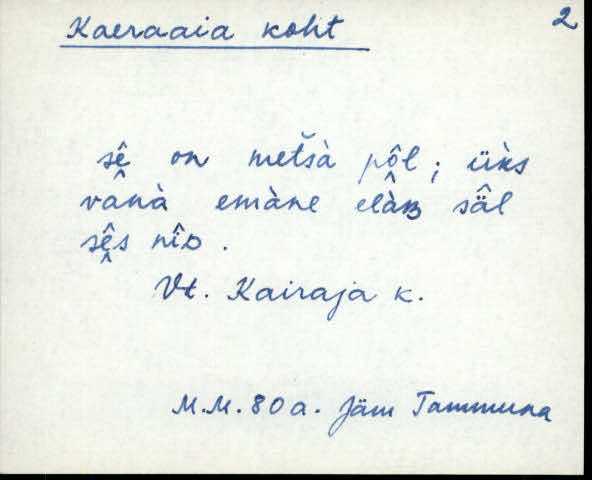 Kaeraaia koht 2
sê on metšà pôl; üks
vânà emàne elàʙ säl
sês nîᴅ.
Vt. Kairaja k.
M.M. 80 a. Jäm Tammuna